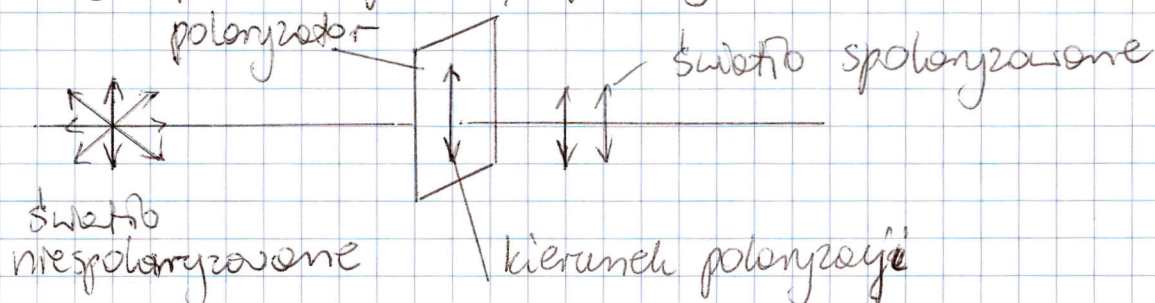 polaryzator
światło spolaryzowane
światło
niespolaryzowane
kierunek polaryzacji